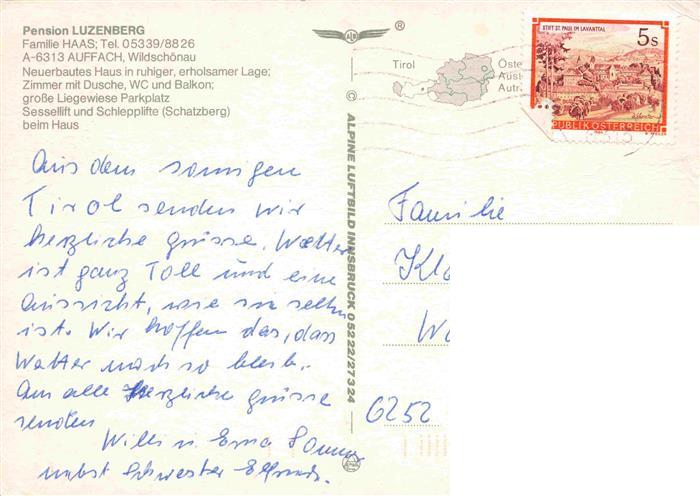 Pension LUZENBERG
Familie HAAS; Tel. 05339/8826
A-6313 AUFFACH, Wildschönau
Neuerbautes Haus in ruhiger, erholsamer Lage;
Zimmer mit Dusche, WC und Balkon;
große Liegewiese Parkplatz
Sessellift und Schlepplifte (Schatzberg)
beim Haus
Aus dem sonnigen
Tirol senden wir
herzliche Grüsse. Wetter
ist ganz Toll und eine
Aussicht, wie sie selten
ist. Wir hoffen das, dass
Wetter noch so bleib.
An alle Herzliche Grüsse
senden
Willi u Erna
nebst Schwester
© ALPINE LUFTBILD INNSBRUCK 05222/27324
®
Tirol
Öste
Aust
Autr
STIFT ST. PAUL IM LAVANTTAL
5s
REPUBLIK ÖSTERREICH
Familie
Klo
Wa
6252